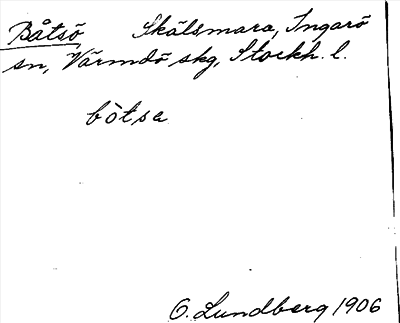 Båtsö Skälsmara, Ingarö
sn, Värmdö skg, Stockh. l.
bòtsa
O. Lundberg 1906